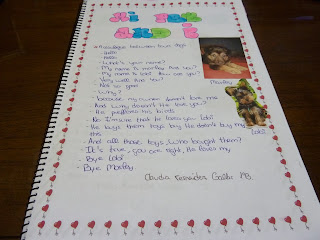 MY PET
AND I
A dialogue between two dogs
- Hello
- Hello
- What's your name?
- My name is Monfley. And you?
- My name is Lolo. How are you?
- Very well. And you?
- Not so good
- Why?
- Because my owner doesn't love me
- And why doesn't he love you?
- He prefferes his birds
- No. I'm sure that he loves you Lolo!
- He buys them toys buy he doesn't buy my
this.
- And all those toys, who bought them?
- It's true, you are right, He loves my
- Bye Lolo!
- Bye Monfley.
Lolo
Claudia